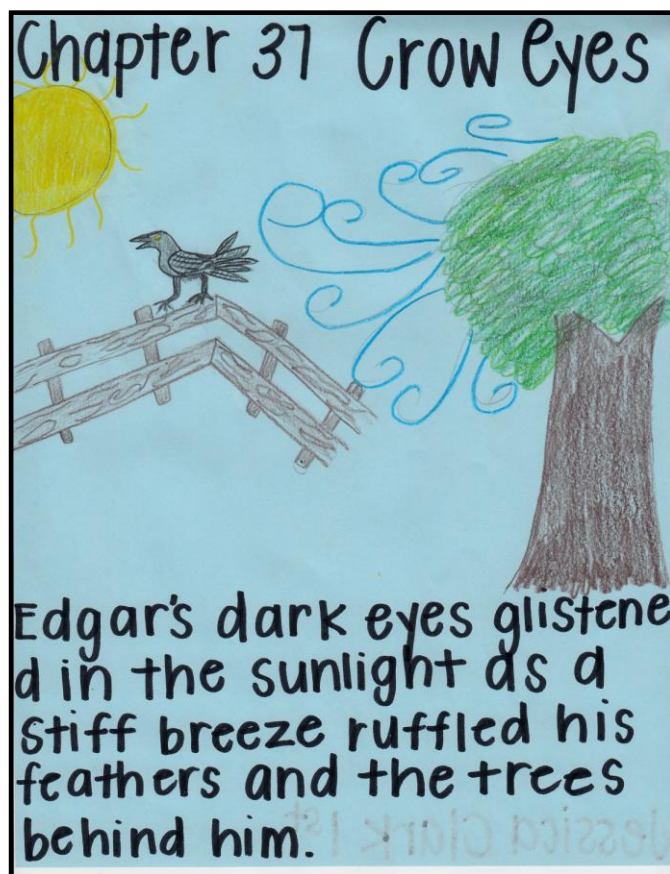 Chapter 37 Crow Eyes
Edgar's dark eyes glistene
d in the sunlight as a
stiff breeze ruffled his
feathers and the trees
behind him.
Jessica Clark 1st